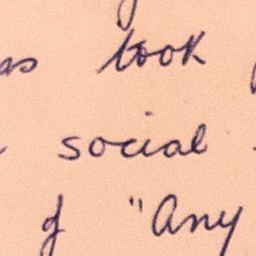 as took
social
of "Any